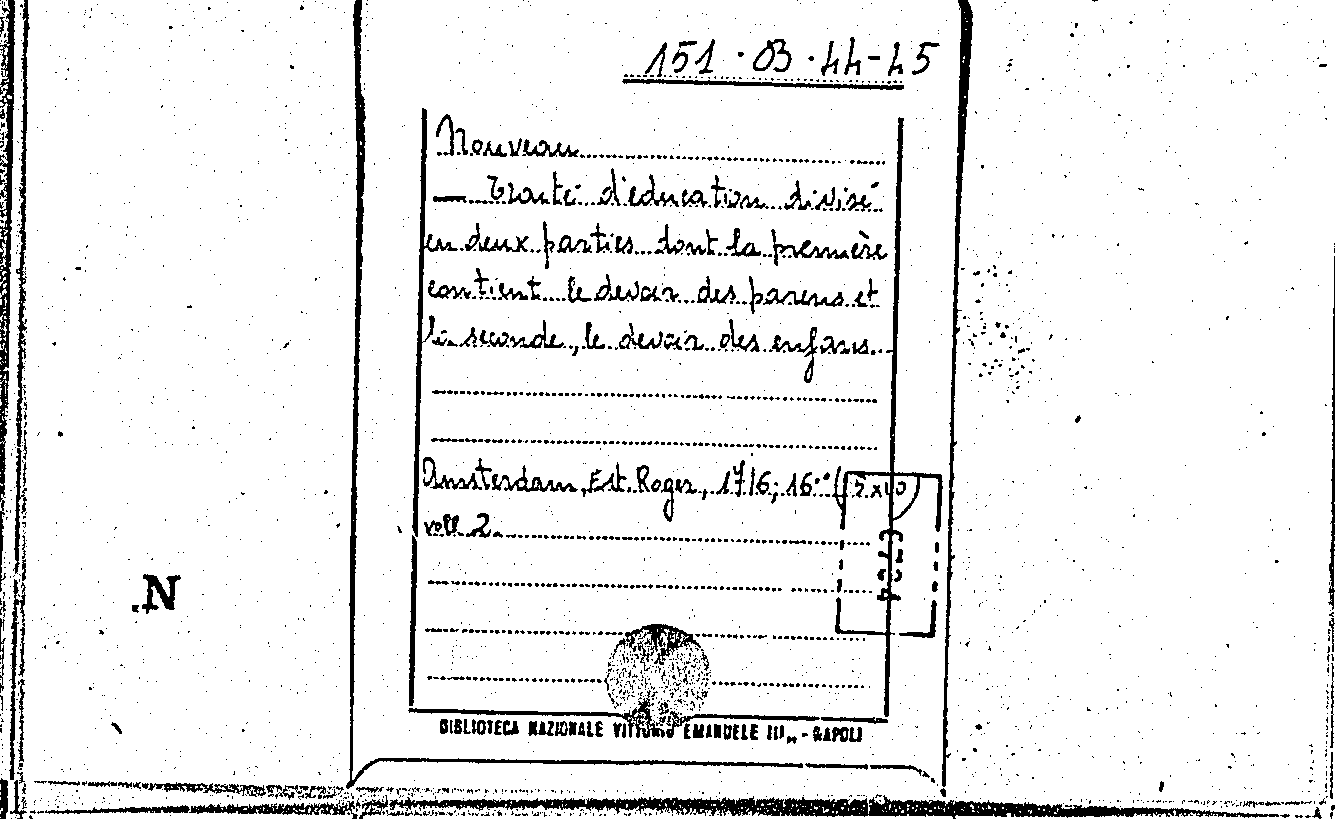 151.03.44-45
Nouveau
— Traité d'éducation divisé
en deux parties dont la première
contient le devoir des parens et
la seconde, le devoir des enfans.
Amsterdam, Est. Roger, 1716; 16°
voll 2.
N.
BIBLIOTECA NAZIONALE VITTORIO EMANUELE III,, - NAPOLI